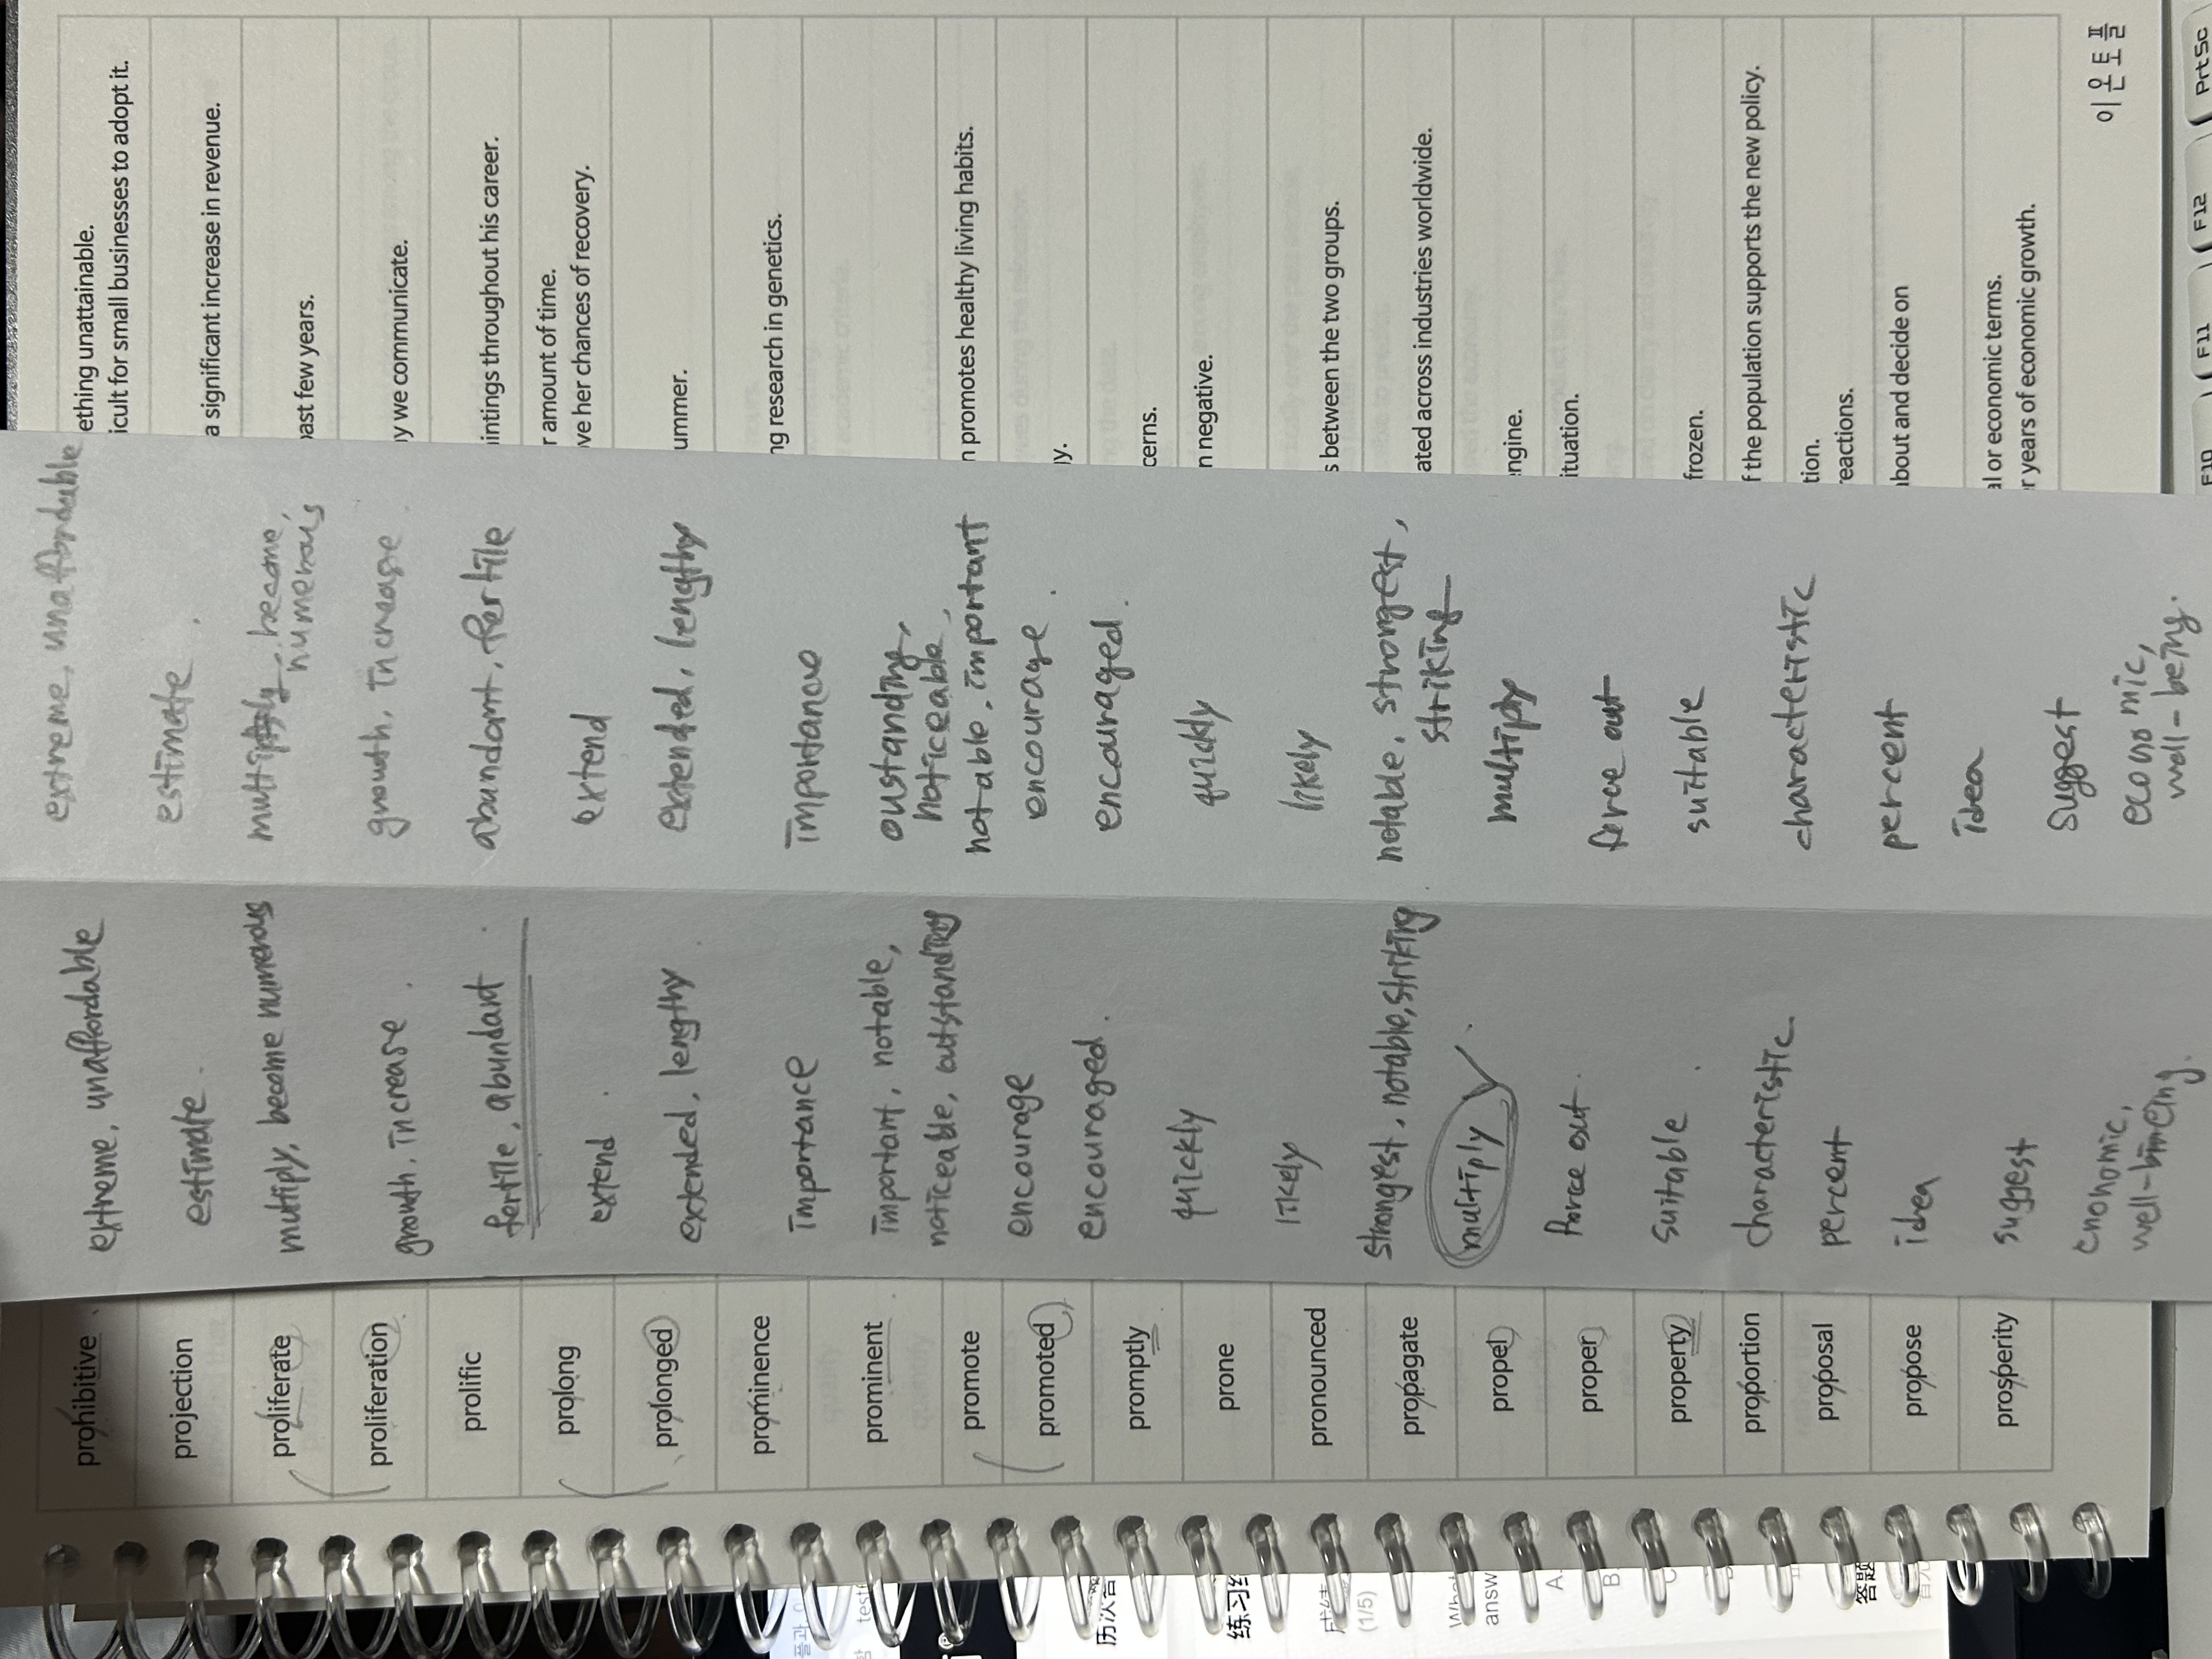 prohibitive
projection
proliferate
proliferation
prolific
prolong
prolonged
prominence
prominent
promote
promoted
promptly
prone
pronounced
propagate
propel
proper
property
proportion
proposal
propose
prosperity
extreme, unaffordable
estimate.
multiply, become numerous
growth, increase.
fertile, abundant.
extend.
extended, lengthy.
importance
important, notable,
noticeable, outstanding
encourage
encouraged.
quickly
likely
strongest, notable, striking
multiply
force out.
suitable.
characteristic.
percent
idea
suggest
enonomic,
well-being.
extreme, unaffordable
estimate.
multiply, become,
numerous
growth, increase.
abundant, fertile
extend
extended, lengthy
importance
oustanding,
noticeable,
notable, important
encourage.
encouraged.
quickly
likely
notable, strongest,
striking
multiply
force out
suitable
characteristic
percent
idea
suggest
economic,
well-being.
ething unattainable.
icult for small businesses to adopt it.
a significant increase in revenue.
past few years.
y we communicate.
intings throughout his career.
r amount of time.
ve her chances of recovery.
ummer.
ng research in genetics.
n promotes healthy living habits.
y.
cerns.
n negative.
s between the two groups.
ated across industries worldwide.
engine.
ituation.
frozen.
f the population supports the new policy.
tion.
reactions.
bout and decide on
al or economic terms.
r years of economic growth.
이온토플
F10
F11
F12
PrtSc
test
历次答
练习
(1/5)
answ
A
B
答题